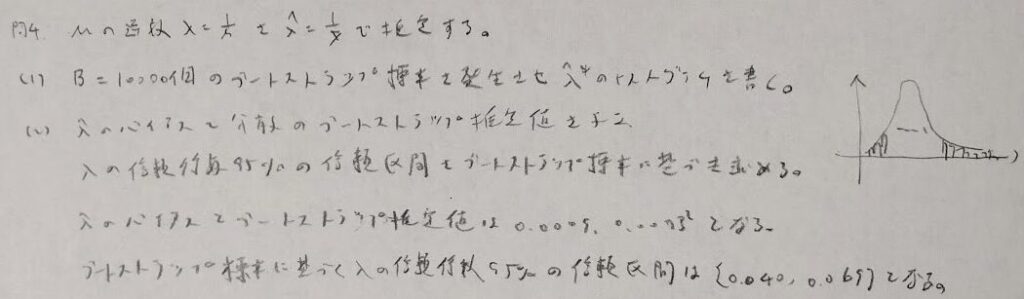 問4. μの函数 λ=1/μ を λ̂=1/x̄ で推定する。
(1) B=10000個のブートストラップ標本を発生させ λ̂*のヒストグラムを書く。
(2) λ̂のバイアスと分散のブートストラップ推定値を与え
λの信頼係数95%の信頼区間をブートストラップ標本に基づき求める。
λ̂のバイアスとブートストラップ推定値は 0.0009, 0.0073² となる。
ブートストラップ標本に基づくλの信頼係数95%の信頼区間は [0.040, 0.069] となる。